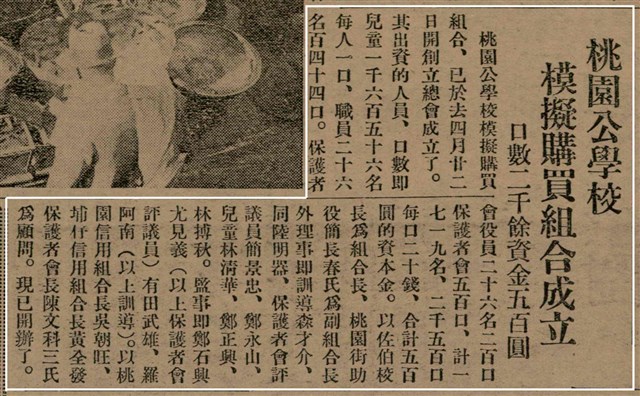 桃園公學校
模擬購買組合成立
口數二千餘資金五百圓
桃園公學校模擬購買
組合、已於去四月廿二
日開創立總會成立了。
其出資的人員、口數即
兒童一千六百五十六名
每人一口、職員二十六
名百四十四口。保護者
會役員二十六名二百口
保護者會五百口、計一
七一九名、二千五百口
每口二十錢、合計五百
圓的資本金。以佐伯校
長為組合長、桃園街助
役簡長春氏為副組合長
外理事即訓導森才介、
同陸明器、保護者會評
議員簡景忠、鄭永山、
兒童林淸華、鄭正興、
林搏秋。監事即鄭石興
尤見義（以上保護者會
評議員）有田武雄、羅
阿南（以上訓導）。以桃
園信用組合長吳朝旺、
埔仔信用組合長黃全發
保護者會長陳文科三氏
為顧問。現已開辦了。